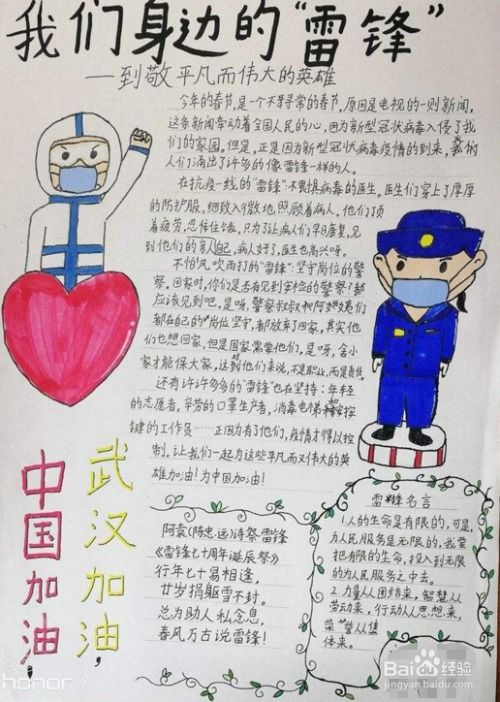 我们身边的“雷锋”
——到敬平凡而伟大的英雄
今年的春节,是一个不寻常的春节,原因是电视的一则新闻,
这条新闻带动着全国人民的心,因为新型冠状病毒入侵了我
们的家园。但是,正是因为新型冠状病毒疫情的到来,我的
人们涌出了许多的像雷锋一样的人。
在抗疫一线的“雷锋”:不畏惧病毒的医生,医生们穿上了厚厚
的防护服,细致入微地照顾着病人,他们顶
着疲劳,忍住
到他们的亲人。病人好了,医生也高兴呀。
不怕风吹雨打的“雷锋”:坚守岗位的警
察,回家时,你们是否有见到安检的警察?都
应该见到吧,是呀,警察叔叔和阿姨们
都在自己的岗位坚守,都放弃了回家,其实他
们也想回家,但是国家需要他们,是呀,舍小
家才能保大家,这对他们来说,不是职业,而是责任。
还有许许多多的“雷锋”也在坚持:年轻
的志愿者,辛劳的口罩生产者,消毒电梯按
键的工作员……正因为有了他们,疫情才得以控
制,让我们一起为这些平凡而又伟大的英
雄加油!为中国加油!
武汉加油,
中国加油
阿袁(陈忠远)诗祭雷锋
《雷锋七十周年诞辰祭》
行年七十易相逢,
廿岁捐躯雪不封。
总为助人私念息,
春风万古说雷锋!
雷锋名言
1.人的生命是有限的,可是,
为人民服务是无限的,我要
把有限的生命,投入到无限
的为人民服务之中去。
2.力量从团结来,智慧从
劳动来,行动从思想来,
荣誉从集
体来。
honor 9
Bai du 经验
jingyan.baidu.com